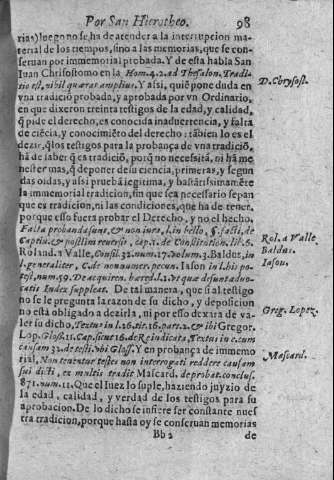 Por San Hierotheo. 98
rias) luego no se ha de atender a la interrupcion ma-
terial de los tiempos, sino a las memorias, que se con-
seruan por immemorial probada. Y de esta habla San
Iuan Chrisostomo en la Hom. 4. 2. ad Thesalon. Tradi-
tio est, nihil quæras amplius. Y assi, quiē pone duda en
D. Chrysost.
vna tradició probada, y aprobada por vn Ordinario,
en que dixeron treinta testigos de la edad, y calidad,
q̄ pide el derecho, es conocida inaduertencia, y falta
de ciēcia, y conocimiēto del derecho: tābien lo es el
dezir, q̄ los testigos para la probança de vna tradició,
hā de saber q̄ es tradició, porq̄ no necessitā, ni hā me
nester mas, q̄ deponer de su ciencia, primeras, y segun
das oidas, y assi prueba legitima, y bastātissimamēte
la immemorial tradicion, sin que sea necessario sepan
que es tradicion, ni las condiciones, que ha de tener,
porque esso fuera probar el Derecho, y no el hecho.
Facta probanda sunt, & non iura, l. in bello, §. facti, de
Captiu. & postlim. reuersis, cap. 1. de Constitution. lib. 6.
Roland. à Valle, Consil. 32. num. 17. volum. 3. Baldus, in
Rol. a Valle
l. generaliter, Code non numer. pecun. Iason in l. his po-
Baldus.
test, num. 49. De acquiren. hæred. l. 2. De quæ desunt aduo-
Iason.
catis Index suppleat. De tal manera, que si al testigo
no se le pregunta la razon de su dicho, y deposicion
no està obligado a dezirla, ni por esso dexara de va-
ler su dicho, Textus in l. 26. tit. 16. part. 2. & ibi Gregor.
Greg. Lopez.
Lop. Gloss. 11. Cap. sicut 16. de Re iudicata, Textus in c. cum
causam 32. de testi. vbi Gloss. Y en probança de immemo
rial, Non tenentur testes non interrogati reddere causam
sui dicti, ex multis tradit Mascard. de probat. conclus.
Mascard.
871. num. 11. Que el Iuez lo suple, haziendo juyzio de
la edad, calidad, y verdad de los testigos para su
aprobacion. De lo dicho se infiere ser constante nues
tra tradicion, porque hasta oy se conseruan memorias
Bb 2 de